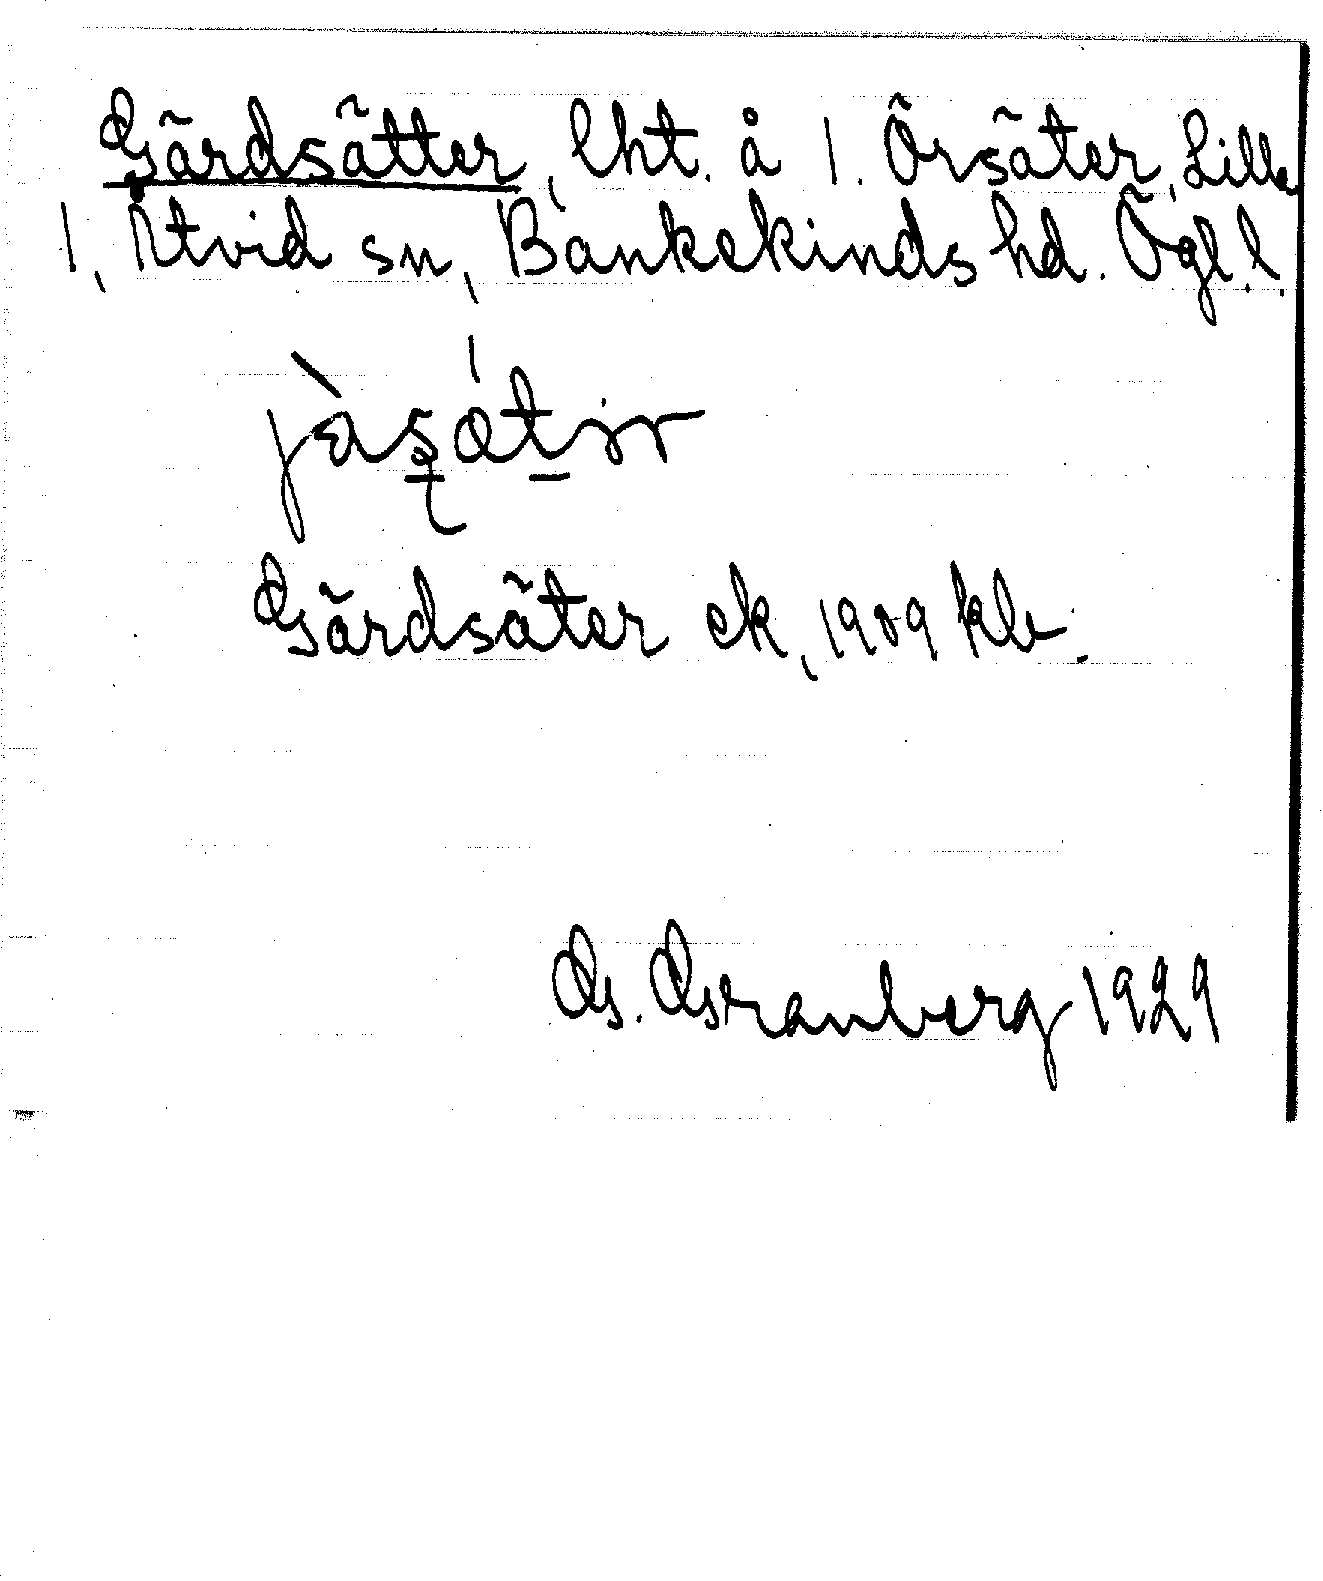 Gärdsätter, lht. å 1. Örsäter, Lilla
1, Åtvid sn, Bankekinds hd. Ögl l.
Gärdsäter ek, 1909 kb.
G. Granberg 1929